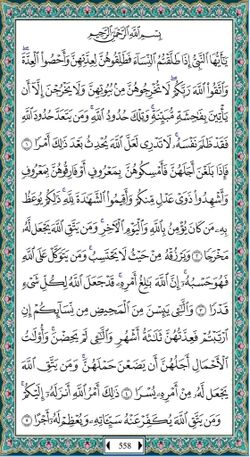 بِسْمِ اللَّهِ الرَّحْمَٰنِ الرَّحِيمِ
يَا أَيُّهَا النَّبِيُّ إِذَا طَلَّقْتُمُ النِّسَاءَ فَطَلِّقُوهُنَّ لِعِدَّتِهِنَّ وَأَحْصُوا الْعِدَّةَ ۖ
وَاتَّقُوا اللَّهَ رَبَّكُمْ ۖ لَا تُخْرِجُوهُنَّ مِنْ بُيُوتِهِنَّ وَلَا يَخْرُجْنَ إِلَّا أَنْ
يَأْتِينَ بِفَاحِشَةٍ مُبَيِّنَةٍ ۚ وَتِلْكَ حُدُودُ اللَّهِ ۚ وَمَنْ يَتَعَدَّ حُدُودَ اللَّهِ
فَقَدْ ظَلَمَ نَفْسَهُ ۚ لَا تَدْرِي لَعَلَّ اللَّهَ يُحْدِثُ بَعْدَ ذَٰلِكَ أَمْرًا ١
فَإِذَا بَلَغْنَ أَجَلَهُنَّ فَأَمْسِكُوهُنَّ بِمَعْرُوفٍ أَوْ فَارِقُوهُنَّ بِمَعْرُوفٍ
وَأَشْهِدُوا ذَوَيْ عَدْلٍ مِنْكُمْ وَأَقِيمُوا الشَّهَادَةَ لِلَّهِ ۚ ذَٰلِكُمْ يُوعَظُ
بِهِ مَنْ كَانَ يُؤْمِنُ بِاللَّهِ وَالْيَوْمِ الْآخِرِ ۚ وَمَنْ يَتَّقِ اللَّهَ يَجْعَلْ لَهُ
مَخْرَجًا ٢ وَيَرْزُقْهُ مِنْ حَيْثُ لَا يَحْتَسِبُ ۚ وَمَنْ يَتَوَكَّلْ عَلَى اللَّهِ
فَهُوَ حَسْبُهُ ۚ إِنَّ اللَّهَ بَالِغُ أَمْرِهِ ۚ قَدْ جَعَلَ اللَّهُ لِكُلِّ شَيْءٍ
قَدْرًا ٣ وَاللَّائِي يَئِسْنَ مِنَ الْمَحِيضِ مِنْ نِسَائِكُمْ إِنِ
ارْتَبْتُمْ فَعِدَّتُهُنَّ ثَلَاثَةُ أَشْهُرٍ وَاللَّائِي لَمْ يَحِضْنَ ۚ وَأُولَاتُ
الْأَحْمَالِ أَجَلُهُنَّ أَنْ يَضَعْنَ حَمْلَهُنَّ ۚ وَمَنْ يَتَّقِ اللَّهَ
يَجْعَلْ لَهُ مِنْ أَمْرِهِ يُسْرًا ٤ ذَٰلِكَ أَمْرُ اللَّهِ أَنْزَلَهُ إِلَيْكُمْ ۚ
وَمَنْ يَتَّقِ اللَّهَ يُكَفِّرْ عَنْهُ سَيِّئَاتِهِ وَيُعْظِمْ لَهُ أَجْرًا ٥
558